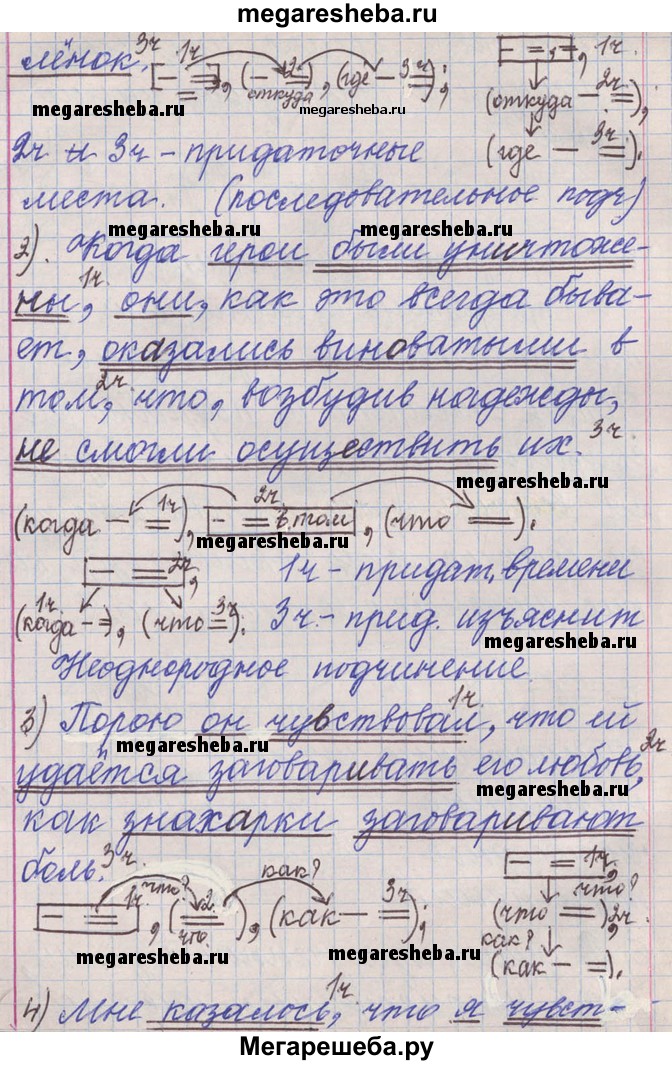 megaresheba.ru
лёнок. 3ч
[– =], 1ч (– =), 2ч откуда (где – =); 3ч
[– =,=], 1ч.
(откуда – =), 2ч
(где – =). 3ч
megaresheba.ru
megaresheba.ru
2ч и 3ч – придаточные
места. (последовательное подч)
megaresheba.ru
2). Когда герои были уничтоже-
ны, 1ч они, как это всегда быва-
megaresheba.ru
ет, оказались виноватыми в
том, 2ч что, возбудив надежды,
не смогли осуществить их. 3ч
megaresheba.ru
(когда – =), 1ч [– = в том], 2ч (что =).
megaresheba.ru
[– =], 2ч
1ч – придат. времени
(когда – =), 1ч (что =). 3ч
3ч. – прид. изъяснит
megaresheba.ru
Неоднородное подчинение
3) Порою он чувствовал, 1ч. что ей
megaresheba.ru
удаётся заговаривать его любовь, 2ч
megaresheba.ru
как знахарки заговаривают
боль. 3ч.
[– =], 1ч что? (что =), 2 как? (как – =); 3ч
[– =], 1ч
что?
(что =), 2ч
как?
(как – =).
megaresheba.ru
megaresheba.ru
4) Мне казалось, 1ч что я чувст-
Мегарешеба.ру